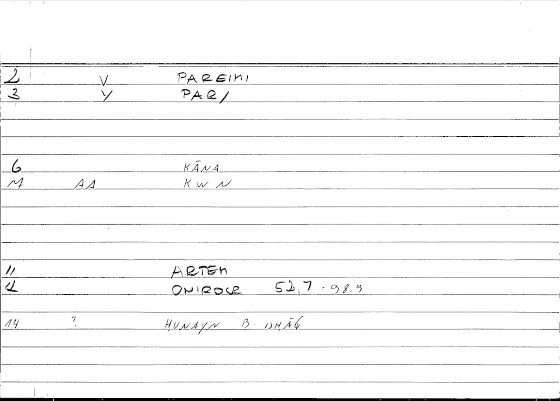 2 V PAREIMI
3 Y PAR/
6 KĀNA
M AA KWN
11 ARTEM
4 ONIROCR 52,7-98.9
14 ? ḤUNAYN B.